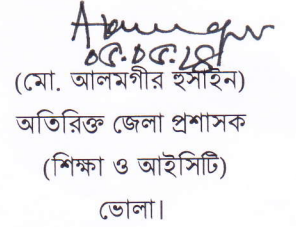 ০৫.০৫.২৪
(মো. আলমগীর হুসাইন)
অতিরিক্ত জেলা প্রশাসক
(শিক্ষা ও আইসিটি)
ভোলা।